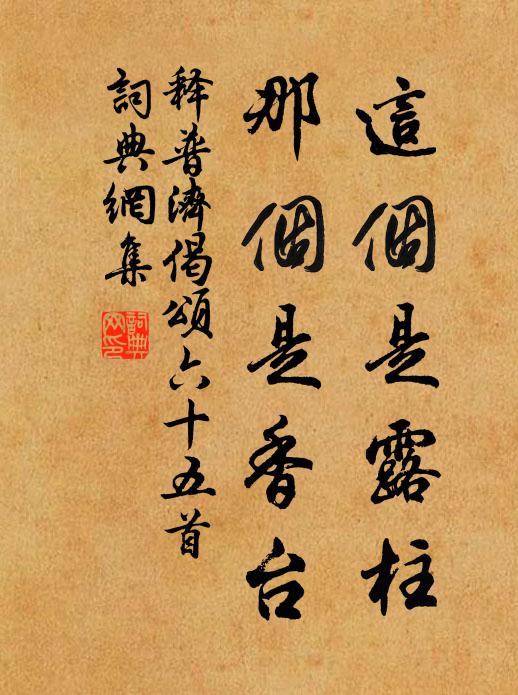 這個是露柱
那個是香台
释普濟偈頌六十五首
詞典網集
詞典网印